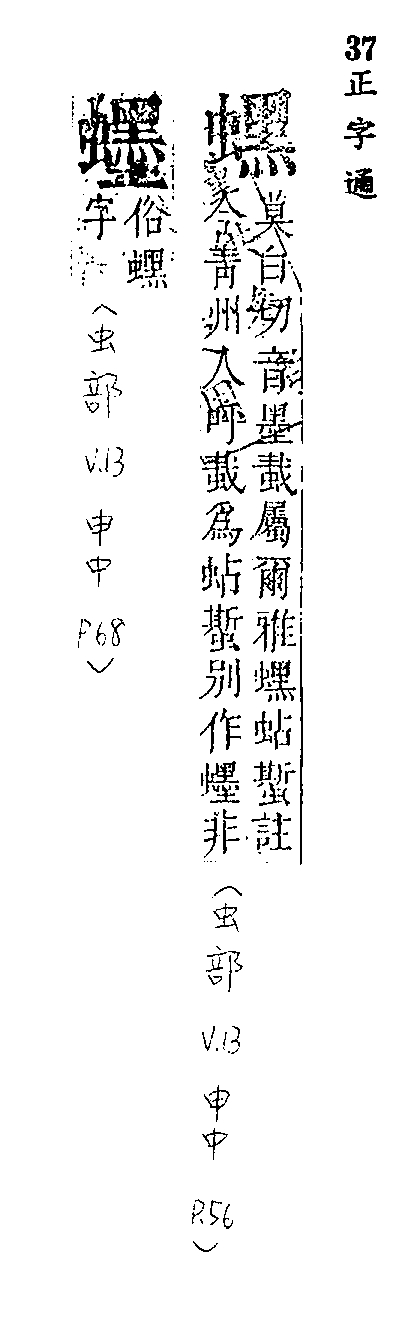 37 正字通
蟔
莫白切音墨蛓屬爾雅蟔蛅蟴註
今青州人呼蛓爲蛅蟴別作䘃非
(虫部 V.13 申中 P.56)
䘃
俗蟔
字
(虫部 V.13 申中 P68)